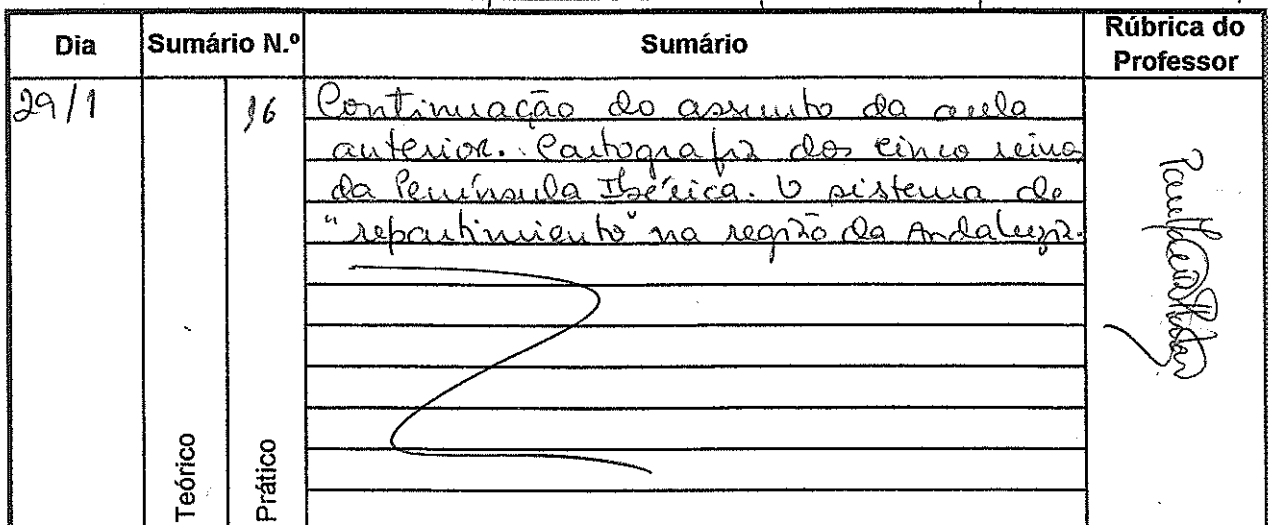 Dia Sumário N.º Sumário Rúbrica do Professor
29/1 16 Continuação do assunto da aula
anterior. Cartografia dos cinco reinos
da Península Ibérica. O sistema de
"repartimiento" na região da Andaluzia.
Teórico
Prático